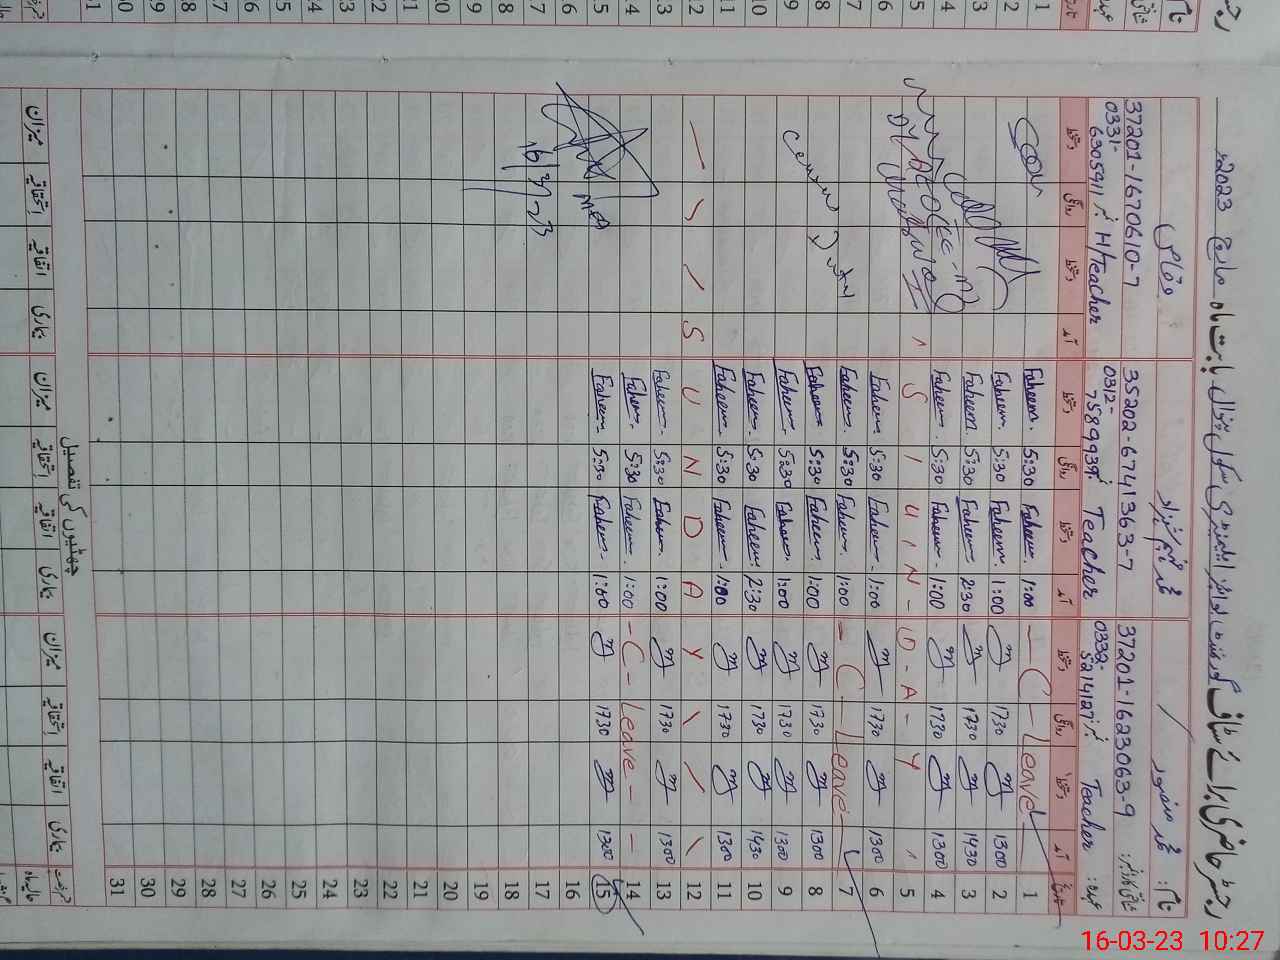 رجسٹر حاضری برائے سٹاف گورنمنٹ بوائز ایلیمنٹری سکول بابت ماہ مارچ 2023ء
نام: محمد منصور / محمد فہیم شہزاد وقاص
شناختی کارڈ نمبر: 37201-1623063-9 35202-6741363-7 37201-1670610-7
عہدہ: Teacher نمبر 0332-5214127 Teacher نمبر 0312-7589939 H/Teacher نمبر 0331-6305911
تاریخ آمد دستخط روانگی دستخط آمد دستخط روانگی دستخط آمد دستخط روانگی دستخط
1 — C — Leave 1:00 Faheem 5:30 Faheem
2 1300 1730 1:00 Faheem 5:30 Faheem
3 1430 1730 2:30 Faheem 5:30 Faheem
4 1300 1730 1:00 Faheem 5:30 Faheem
5 S - U - N - D - A - Y
6 1300 1730 1:00 Faheem 5:30 Faheem
7 — C — Leave — 1:00 Faheem 5:30 Faheem
8 1300 1730 1:00 Faheem 5:30 Faheem
9 1300 1730 1:00 Faheem 5:30 Faheem Census Duty
10 1430 1730 2:30 Faheem 5:30 Faheem
11 1300 1730 1:00 Faheem 5:30 Faheem
12 S U N D A Y
13 1300 1730 1:00 Faheem 5:30 Faheem
14 — C — Leave — 1:00 Faheem 5:30 Faheem
15 1300 1730 1:00 Faheem 5:30 Faheem
16
17 16/3/23
18
19
20
21
22
23
24
25
26
27
28
29
30
31
چھٹیوں کی تفصیل
بیماری اتفاقیہ استحقاقیہ میزان بیماری اتفاقیہ استحقاقیہ میزان بیماری اتفاقیہ استحقاقیہ میزان
16-03-23 10:27